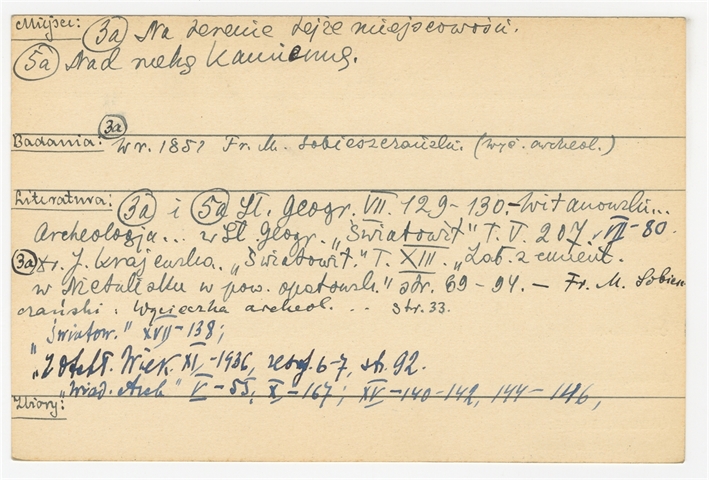 Miejsc: (3a) Na terenie tejże miejscowości.
(5a) Nad rzeką Kamienną.
(3a)
Badania: w r. 1851 Fr. M. Sobieszczański. (wyc. archeol.)
Literatura: (3a) i (5a) Sł. Geogr. VII. 129-130.- Witanowski...
Archeologja... w Sł. Geogr. "Światowit" T. V. 207, VI-80.
(3a) J. Krajewska. "Światowit." T. XIII. "Zab. z cment.
w Nietulisku w pow. opatowsk." str. 89-94. - Fr. M. Sobiesz
czański: Wycieczka archeol... str. 33.
"Światow." XVII-138;
"Z otchł. Wiek. XI,-1936, zesz. 6-7, str. 92.
"Wiad. Arch" V-55, X,-167; XV-140-142, 144-146,
Zbiory: